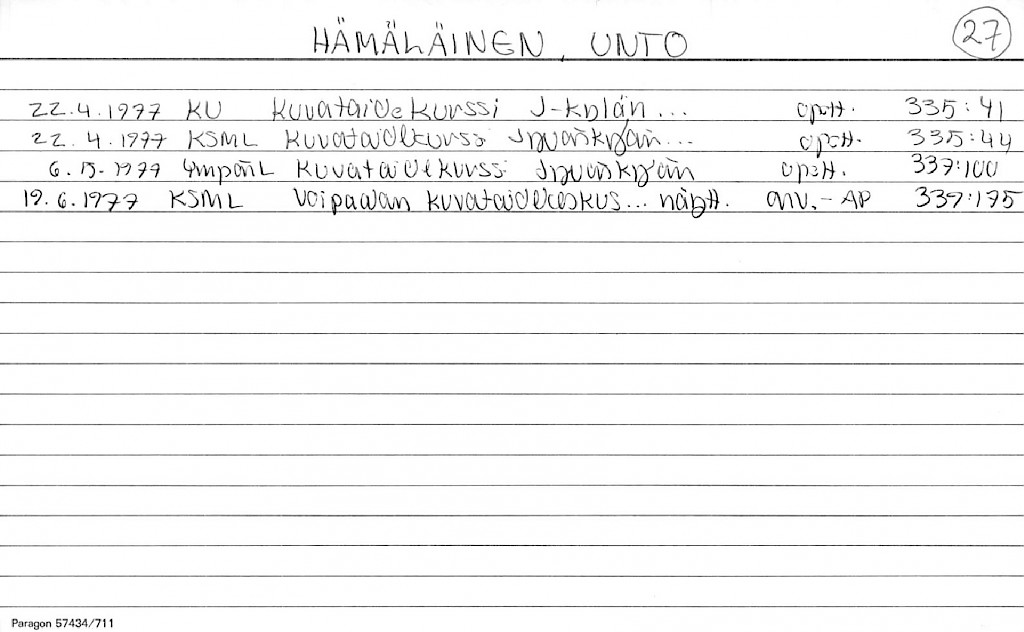 HÄMÄLÄINEN, UNTO 27
22.4.1977 KU Kuvataidekurssi J-kylän... opett. 335:41
22.4.1977 KSML Kuvataidekurssi Jyväskylän... opett. 335:44
6.5.1977 YmpäriL Kuvataidekurssi Jyväskylän opett. 337:100
19.6.1977 KSML Voipaalan kuvataidekeskus... näytt. arv.-AP 339:175
Paragon 57434/711